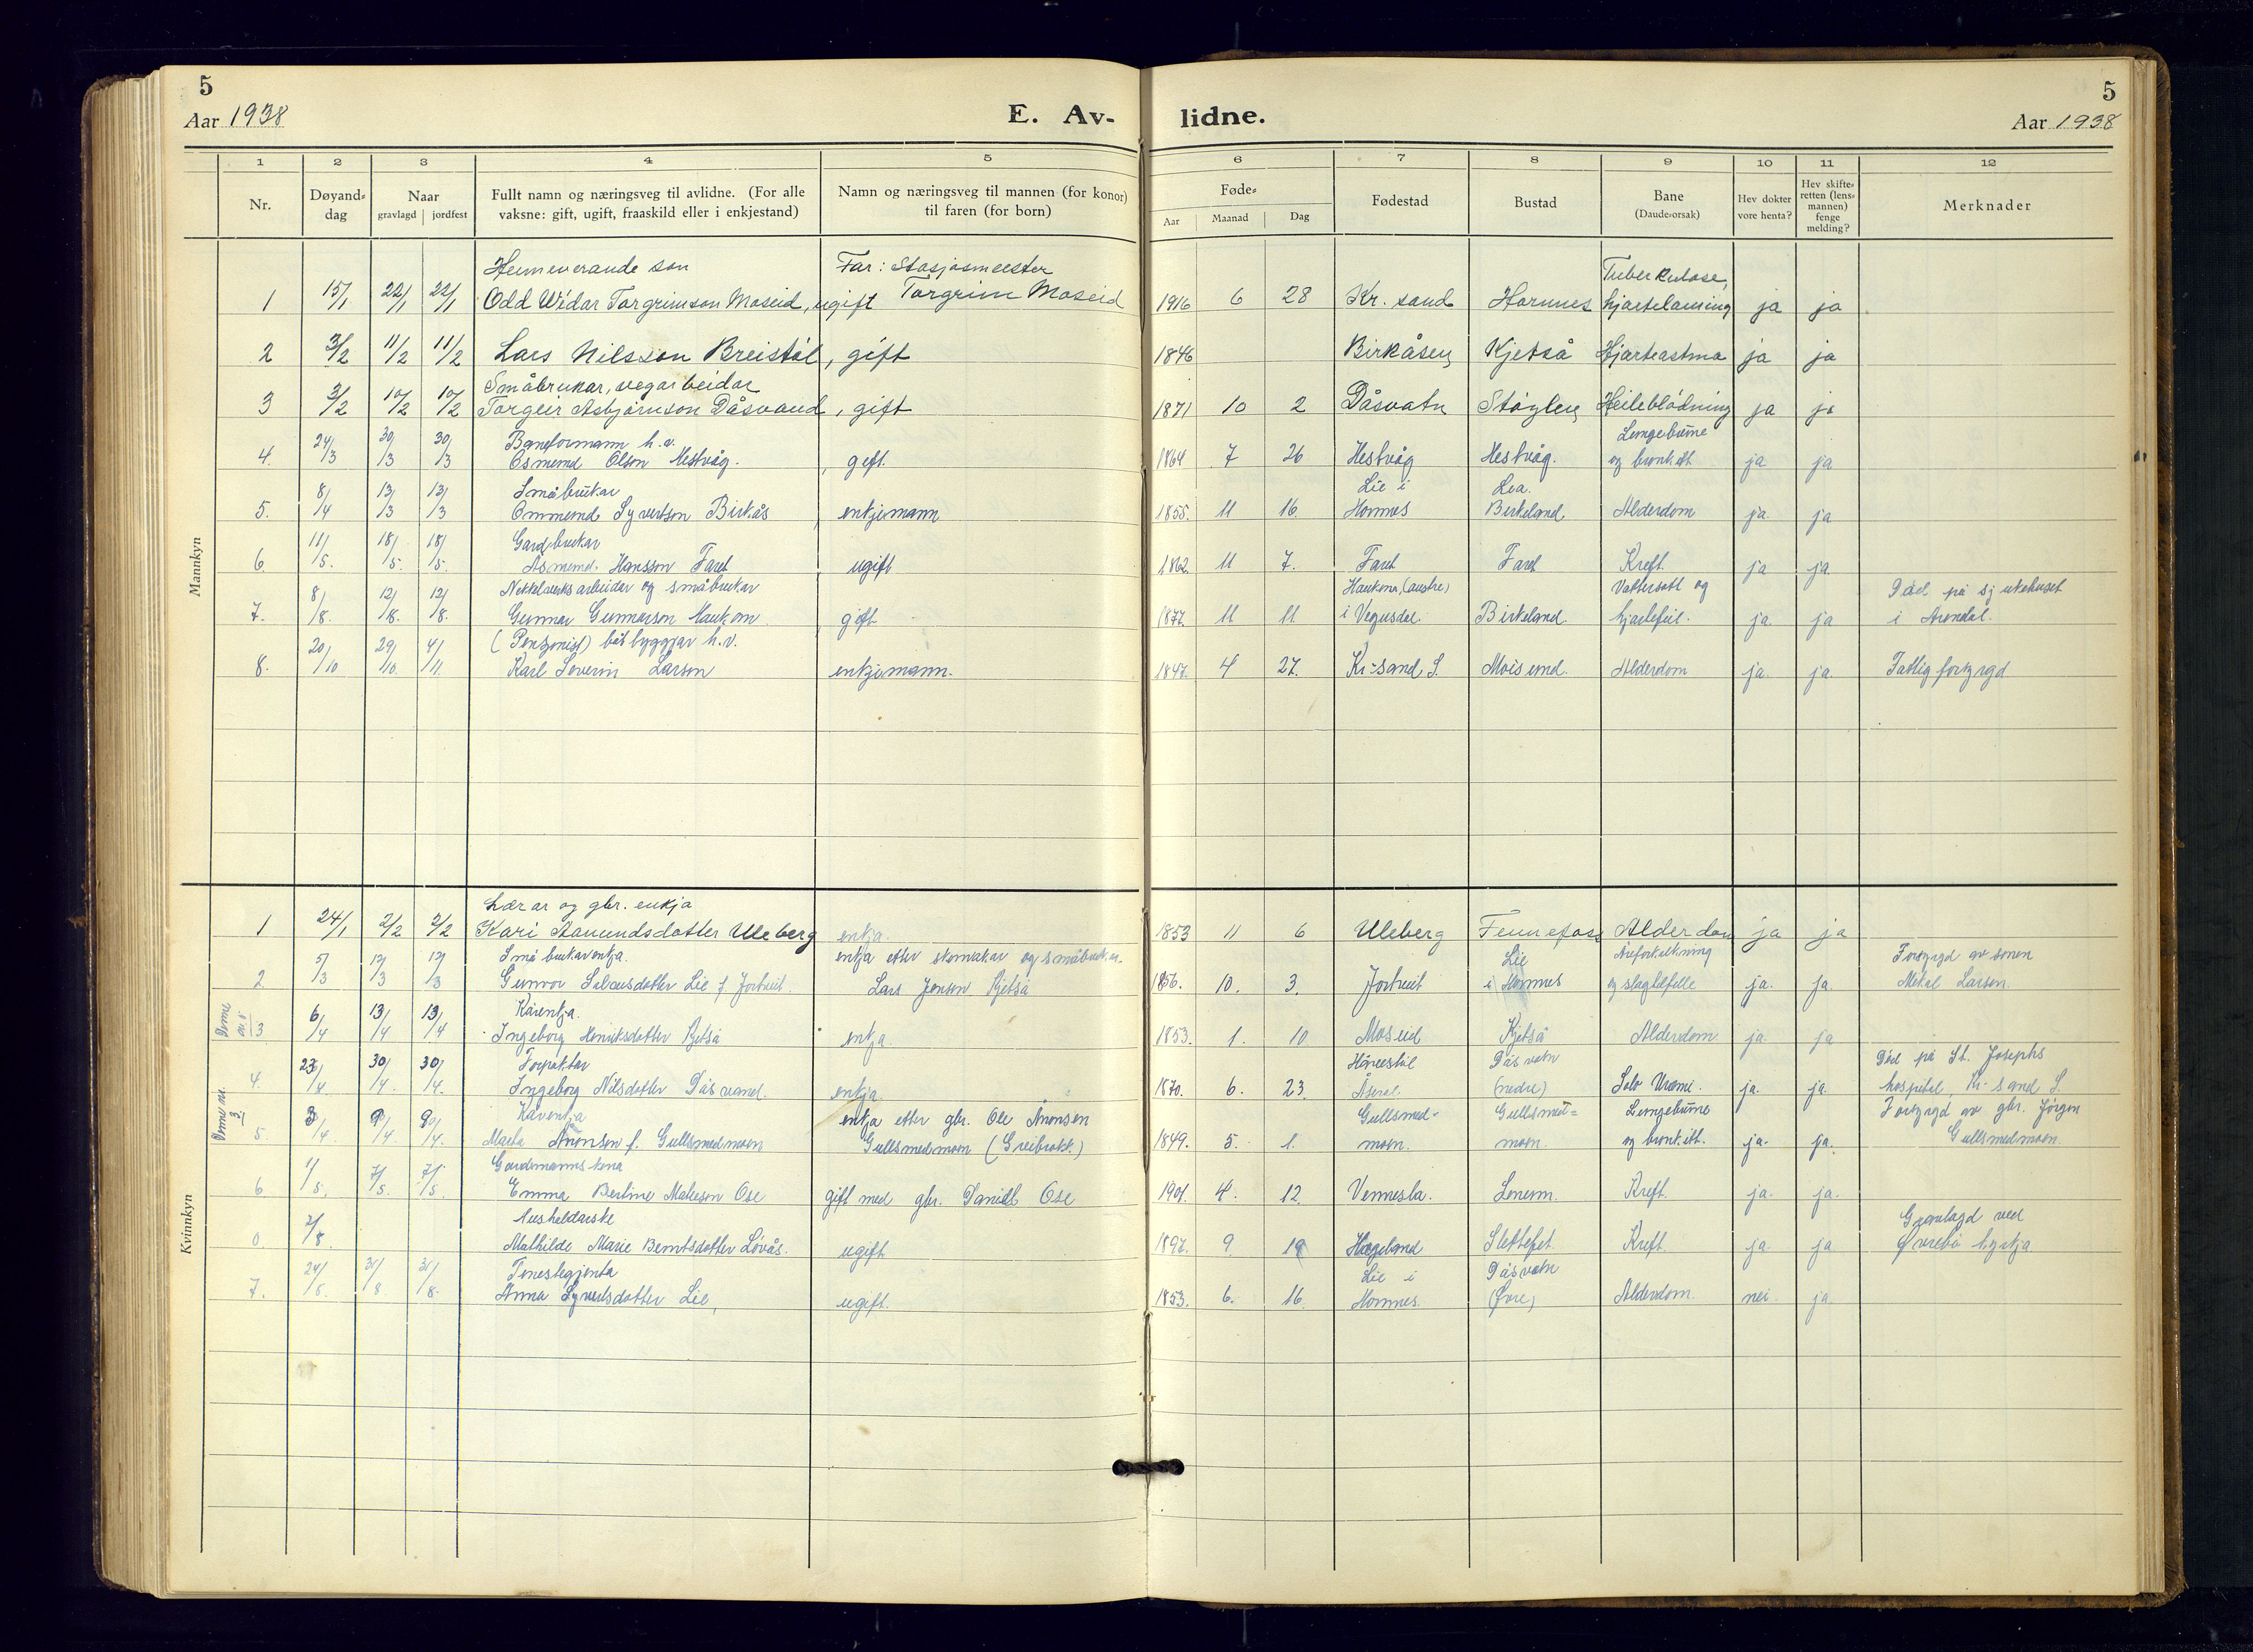 5
Aar 1938
E. Av-
lidne.
5
Aar 1938
1 2 3 4 5 6 7 8 9 10 11 12
Nr.
Døyand-dag
Naar
gravlagd jordfest
Fullt namn og næringsveg til avlidne. (For alle
vaksne: gift, ugift, fraaskild eller i enkjestand)
Namn og næringsveg til mannen (for konor)
til faren (for born)
Føde-
Aar Maanad Dag
Fødestad
Bustad
Bane
(Daude-orsak)
Hev dokter
vore henta?
Hev skifte-
retten (lens-
mannen)
fenge
melding?
Merknader
Mannkyn
Heimeverande son Far: Stasjosmeester Tuberkulose,
1 15/1 22/1 22/1 Odd Widar Torgrimson Moseid, ugift Torgrim Moseid 1916 6 28 Kr. sand Hornnes hjartelamning ja ja
2 3/2 11/2 11/2 Lars Nilsson Breistøl, gift 1846 Birkåsen Kjetså Hjarteastma ja ja
Småbrukar, vegarbeidar
3 3/2 10/2 10/2 Torgeir Asbjørnson Dåsvand, gift 1871 10 2 Dåsvatn Støylen Heileblödning ja ja
Baneformann h.v. Lungebetennelse
4. 24/3 30/3 30/3 Osmund Olson Hestvåg. gift. 1864 7 26 Hestvåg Hestvåg. og bronkitt ja ja
Småbrukar Lie i Lia.
5. 8/4 13/3 13/3 Ommund Syvertson Birkås enkjemann 1855. 11 16. Hornnes Birkeland Alderdom ja. ja
Gardbrukar
6. 11/5. 18/5. 18/5. Åsmund Hansson Faret ugift 1862. 11 7. Faret Faret Kreft. ja ja.
Nikkelverksarbeidar og småbrukar Haukom (austre) Vattersott og Död på sjukehuset
7. 8/8. 12/8. 12/8. Gunnar Gunnarson Haukom gift 1877. 11 11. i Vegusdal. Birkeland. hjartefeil. ja. ja i Arendal.
(Pensjonist) båtbyggjar h.v.
8. 20/10 29/10. 4/11. Karl Severin Larson enkjemann. 1847. 4 27. Kr-sand S. Moisund. Alderdom ja. ja. Fattigforsyrgd
Kvinnkyn
Lærar og gbr. enkja
1 24/1 2/2 2/2 Kari Aanundsdotter Uleberg enkja. 1853 11 6 Uleberg Fennefoss Alderdom ja ja
Småbrukarenkja. enkja etter skomakar og småbrukar. Lie Åreforkalkning Forsyrgd av sonen
2 5/3 12/3 12/3 Gunvor Salvesdotter Lie f. Jortveit. Lars Jenson Kjetså 1856. 10. 3. Jortveit i Hornnes og slagtilfelle ja. ja. Mikal Larson.
Denne er nr. 5
Kårenkja.
3 6/4 13/4 13/4 Ingeborg Henriksdotter Kjetså enkja 1853. 1. 10. Moseid Kjetså Alderdom. ja. ja
Forpaktar Dåsvatn Död på St. Josephs
4. 23/4. 30/4. 30/4. Ingeborg Nilsdotter Dåsvand. enkja. 1870. 6. 23. Åseral. (nedre) Uræmi. ja. ja. hospital Kr-sand S.
Denne nr. 3
Kårenkja enkja etter gbr. Ole Aronsen Gullsmed- Gullsmed= Forsyrgd av gbr. Jörgen
5. 3/4. 9/4. 9/4. Aronsen f. Gullsmedmoen Gullsmedmoen 1849. 5. 1. moen. moen. og bronkitt. ja. ja. Gullsmedmoen.
Gardmannskona
6 1/5. 7/5. 7/5. Emma Berline Ose gift med gbr. Daniel Ose 1901. 4. 12. Vennesla. Kreft. ja. ja.
Hushaldarske Gravlagd ved
0 2/8. Mathilde Marie Berntsdotter Løvås. ugift 1897. 9. 19 Hægeland Slettefet Kreft. ja. ja. Øvrebö kyrkja
Tenestegjenta Lie i Dåsvatn
7. 24/8. 31/8. 31/8. Anna Syvertsdotter Lie, ugift. 1853. 6. 16. Hornnes. (Øvre) Alderdom. nei. ja.